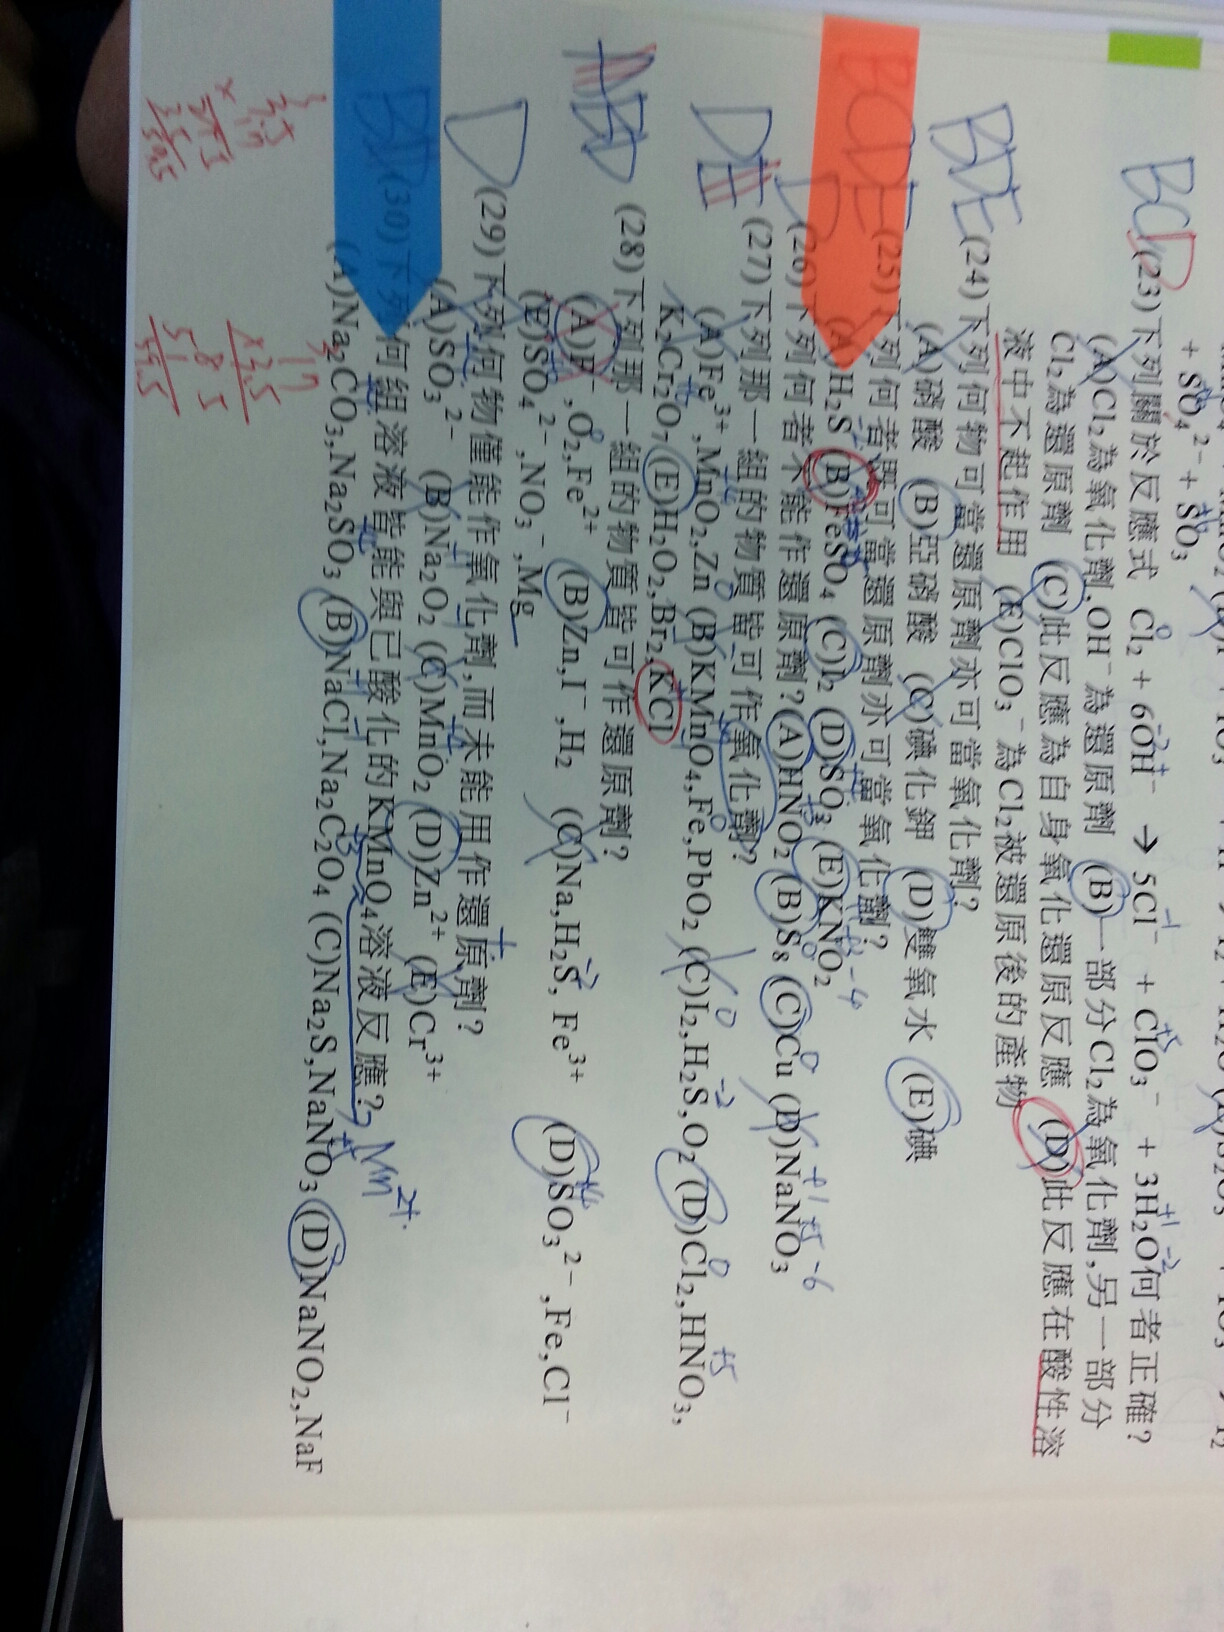 + SO₄²⁻ + SO₃
BCD (23)下列關於反應式 Cl₂ + 6OH⁻ → 5Cl⁻ + ClO₃⁻ + 3H₂O何者正確?
(A)Cl₂為氧化劑,OH⁻為還原劑 (B)一部分Cl₂為氧化劑,另一部分
Cl₂為還原劑 (C)此反應為自身氧化還原反應 (D)此反應在酸性溶
液中不起作用 (E)ClO₃⁻為Cl₂被還原後的產物
BDE (24)下列何物可當還原劑亦可當氧化劑?
(A)硝酸 (B)亞硝酸 (C)碘化鉀 (D)雙氧水 (E)碘
BCDE (25)下列何者既可當還原劑亦可當氧化劑?
(A)H₂S (B)FeSO₄ (C)I₂ (D)SO₃ (E)KNO₂
D (26)下列何者不能作還原劑?(A)HNO₂ (B)S₈ (C)Cu (D)NaNO₃
DE (27)下列那一組的物質皆可作氧化劑?
(A)Fe³⁺,MnO₂,Zn (B)KMnO₄,Fe,PbO₂ (C)I₂,H₂S,O₂ (D)Cl₂,HNO₃,
K₂Cr₂O₇ (E)H₂O₂,Br₂,KCl
BD (28)下列那一組的物質皆可作還原劑?
(A)F⁻,O₂,Fe²⁺ (B)Zn,I⁻,H₂ (C)Na,H₂S,Fe³⁺ (D)SO₃²⁻,Fe,Cl⁻
(E)SO₄²⁻,NO₃⁻,Mg
D (29)下列何物僅能作氧化劑,而未能用作還原劑?
(A)SO₃²⁻ (B)Na₂O₂ (C)MnO₂ (D)Zn²⁺ (E)Cr³⁺
BD (30)下列何組溶液皆能與已酸化的KMnO₄溶液反應? Mn²⁺
(A)Na₂CO₃,Na₂SO₃ (B)NaCl,Na₂C₂O₄ (C)Na₂S,NaNO₃ (D)NaNO₂,NaF